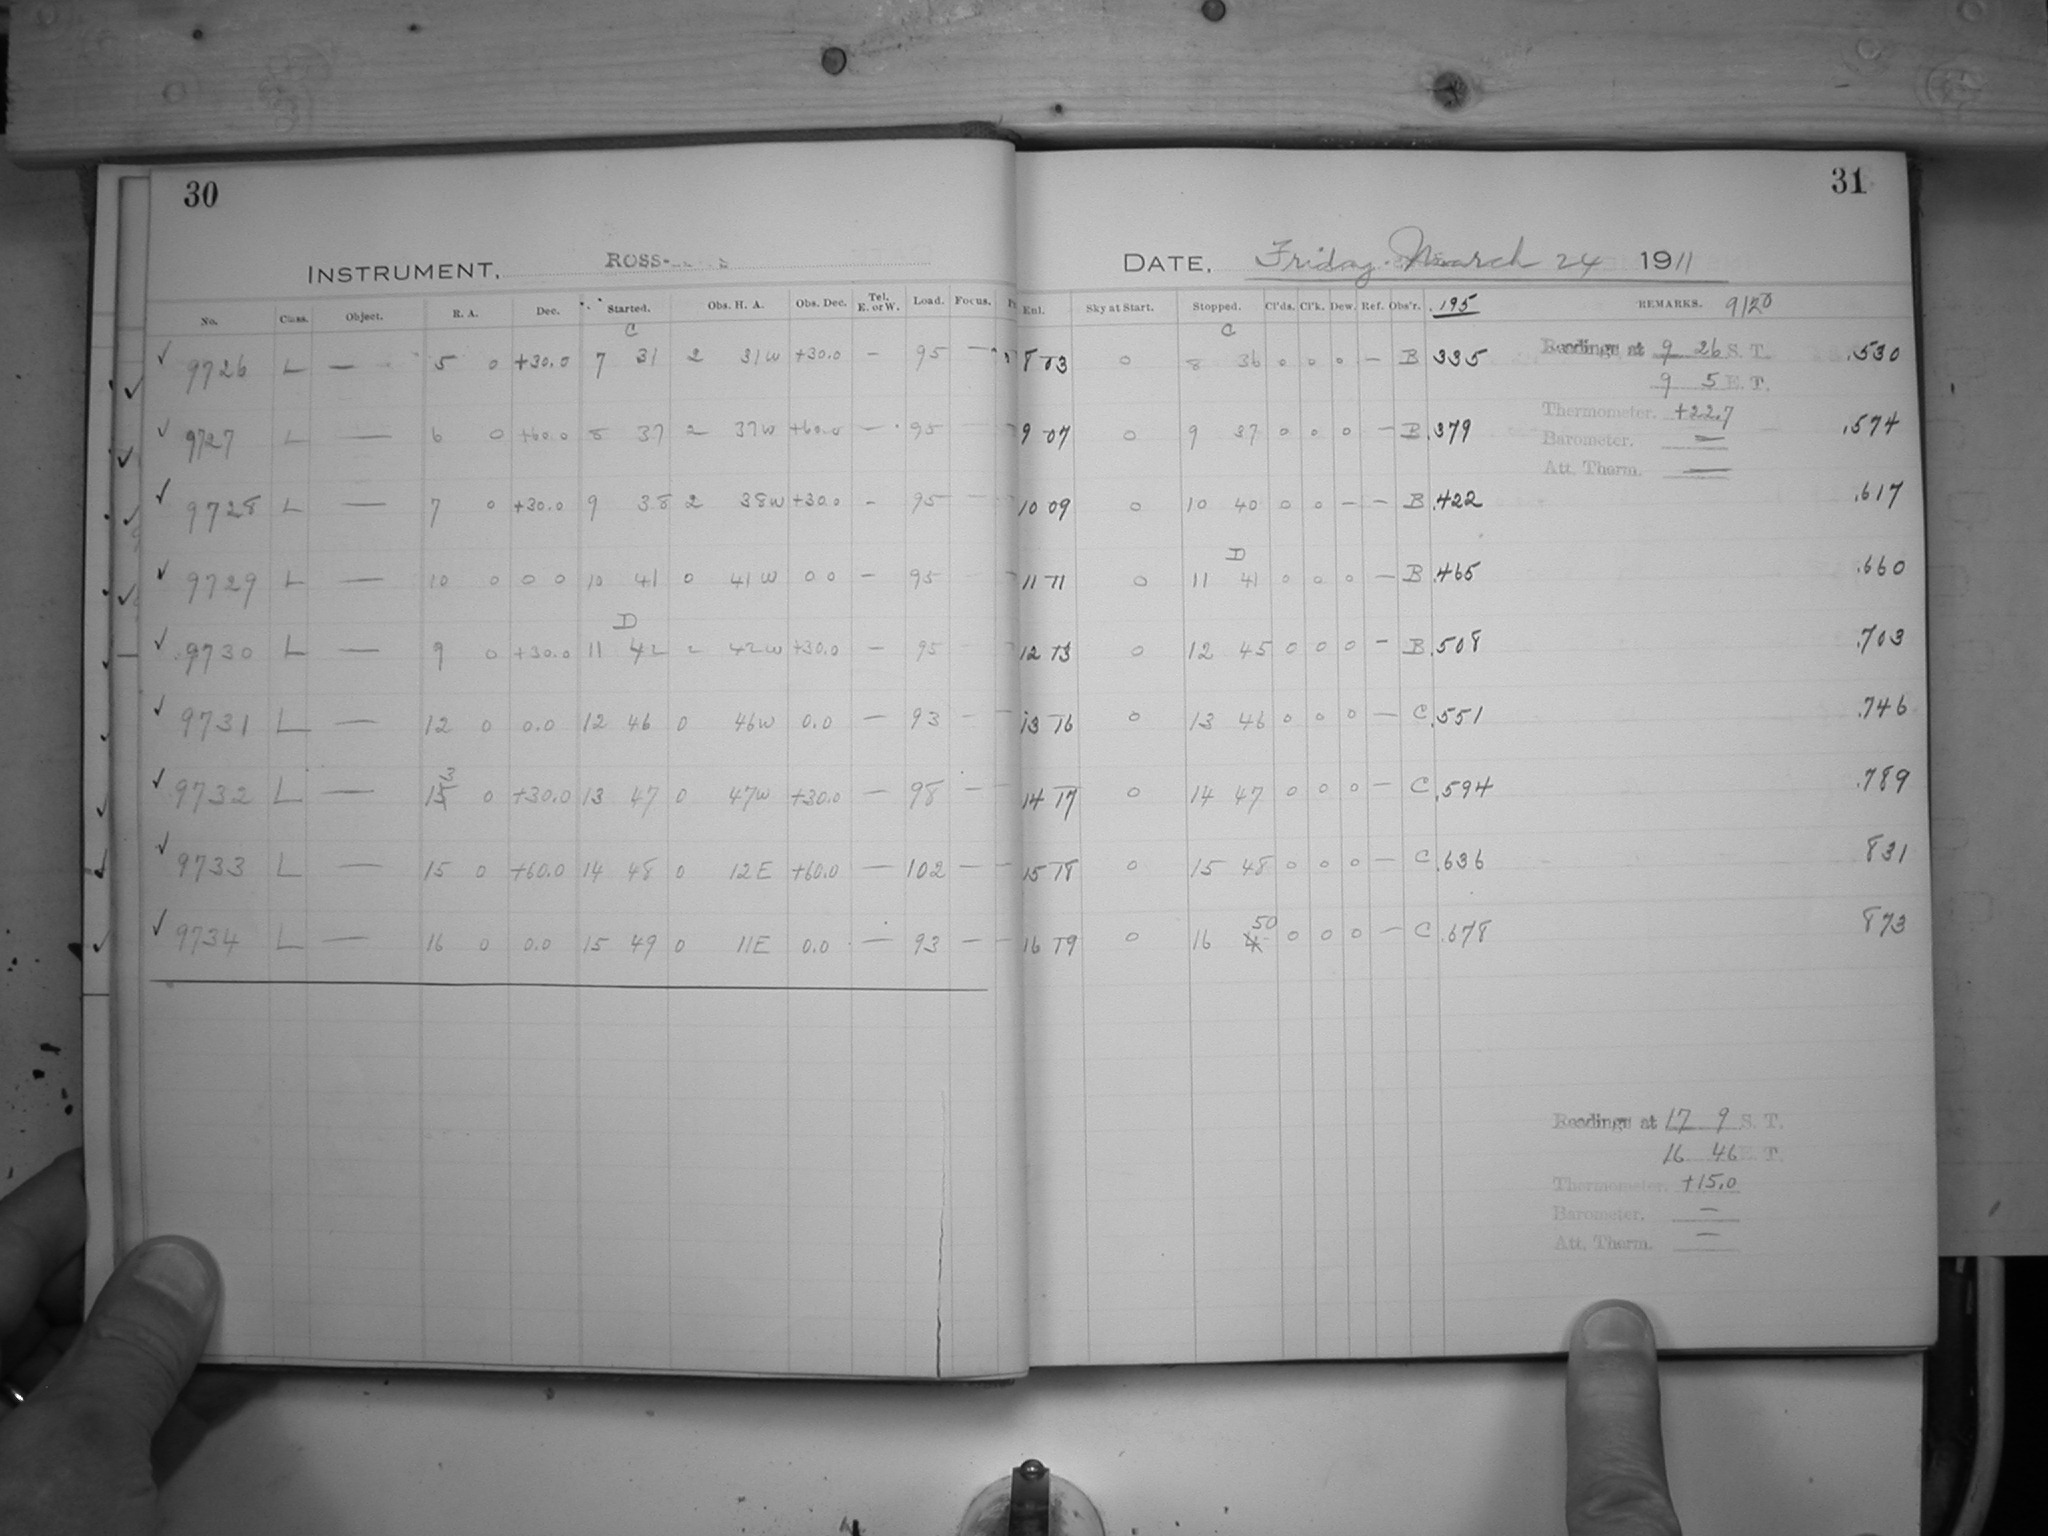 30
INSTRUMENT, ROSS-
No. Class. Object. R. A. Dec. Started. Obs. H. A. Obs. Dec. Tel. E. or W. Load. Focus.
C
✓ 9726 L — 5 0 +30.0 7 31 2 31W +30.0 — 95 —
✓ 9727 L — 6 0 +60.0 8 37 2 37W +60.0 — 95 —
✓ 9728 L — 7 0 +30.0 9 38 2 38W +30.0 — 95 —
✓ 9729 L — 10 0 0 0 10 41 0 41W 0 0 — 95 —
D
✓ 9730 L — 9 0 +30.0 11 42 2 42W +30.0 — 95 —
✓ 9731 L — 12 0 0.0 12 46 0 46W 0.0 — 93 —
3
✓ 9732 L — 15 0 +30.0 13 47 0 47W +30.0 — 98 —
✓ 9733 L — 15 0 +60.0 14 48 0 12E +60.0 — 102 —
✓ 9734 L — 16 0 0.0 15 49 0 11E 0.0 — 93 —
31
DATE, Friday March 24 1911
Enl. Sky at Start. Stopped. Cl'ds. Cl'k. Dew. Ref. Obs'r. .195 REMARKS. 9120
C
8 03 0 8 36 0 0 0 — B 335 Readings at 9 26 S. T. .530
9 5 E. T.
Thermometer. +22.7
9 07 0 9 37 0 0 0 — B .379 .574
Barometer. —
Att. Therm. —
10 09 0 10 40 0 0 — — B .422 .617
D
11 11 0 11 41 0 0 0 — B .465 .660
12 13 0 12 45 0 0 0 — B .508 .703
13 16 0 13 46 0 0 0 — C .551 .746
14 17 0 14 47 0 0 0 — C .594 .789
15 18 0 15 48 0 0 0 — C .636 831
50
16 19 0 16 0 0 0 — C .678 873
Readings at 17 9 S. T.
16 46 E. T.
Thermometer. +15.0
Barometer. —
Att. Therm. —